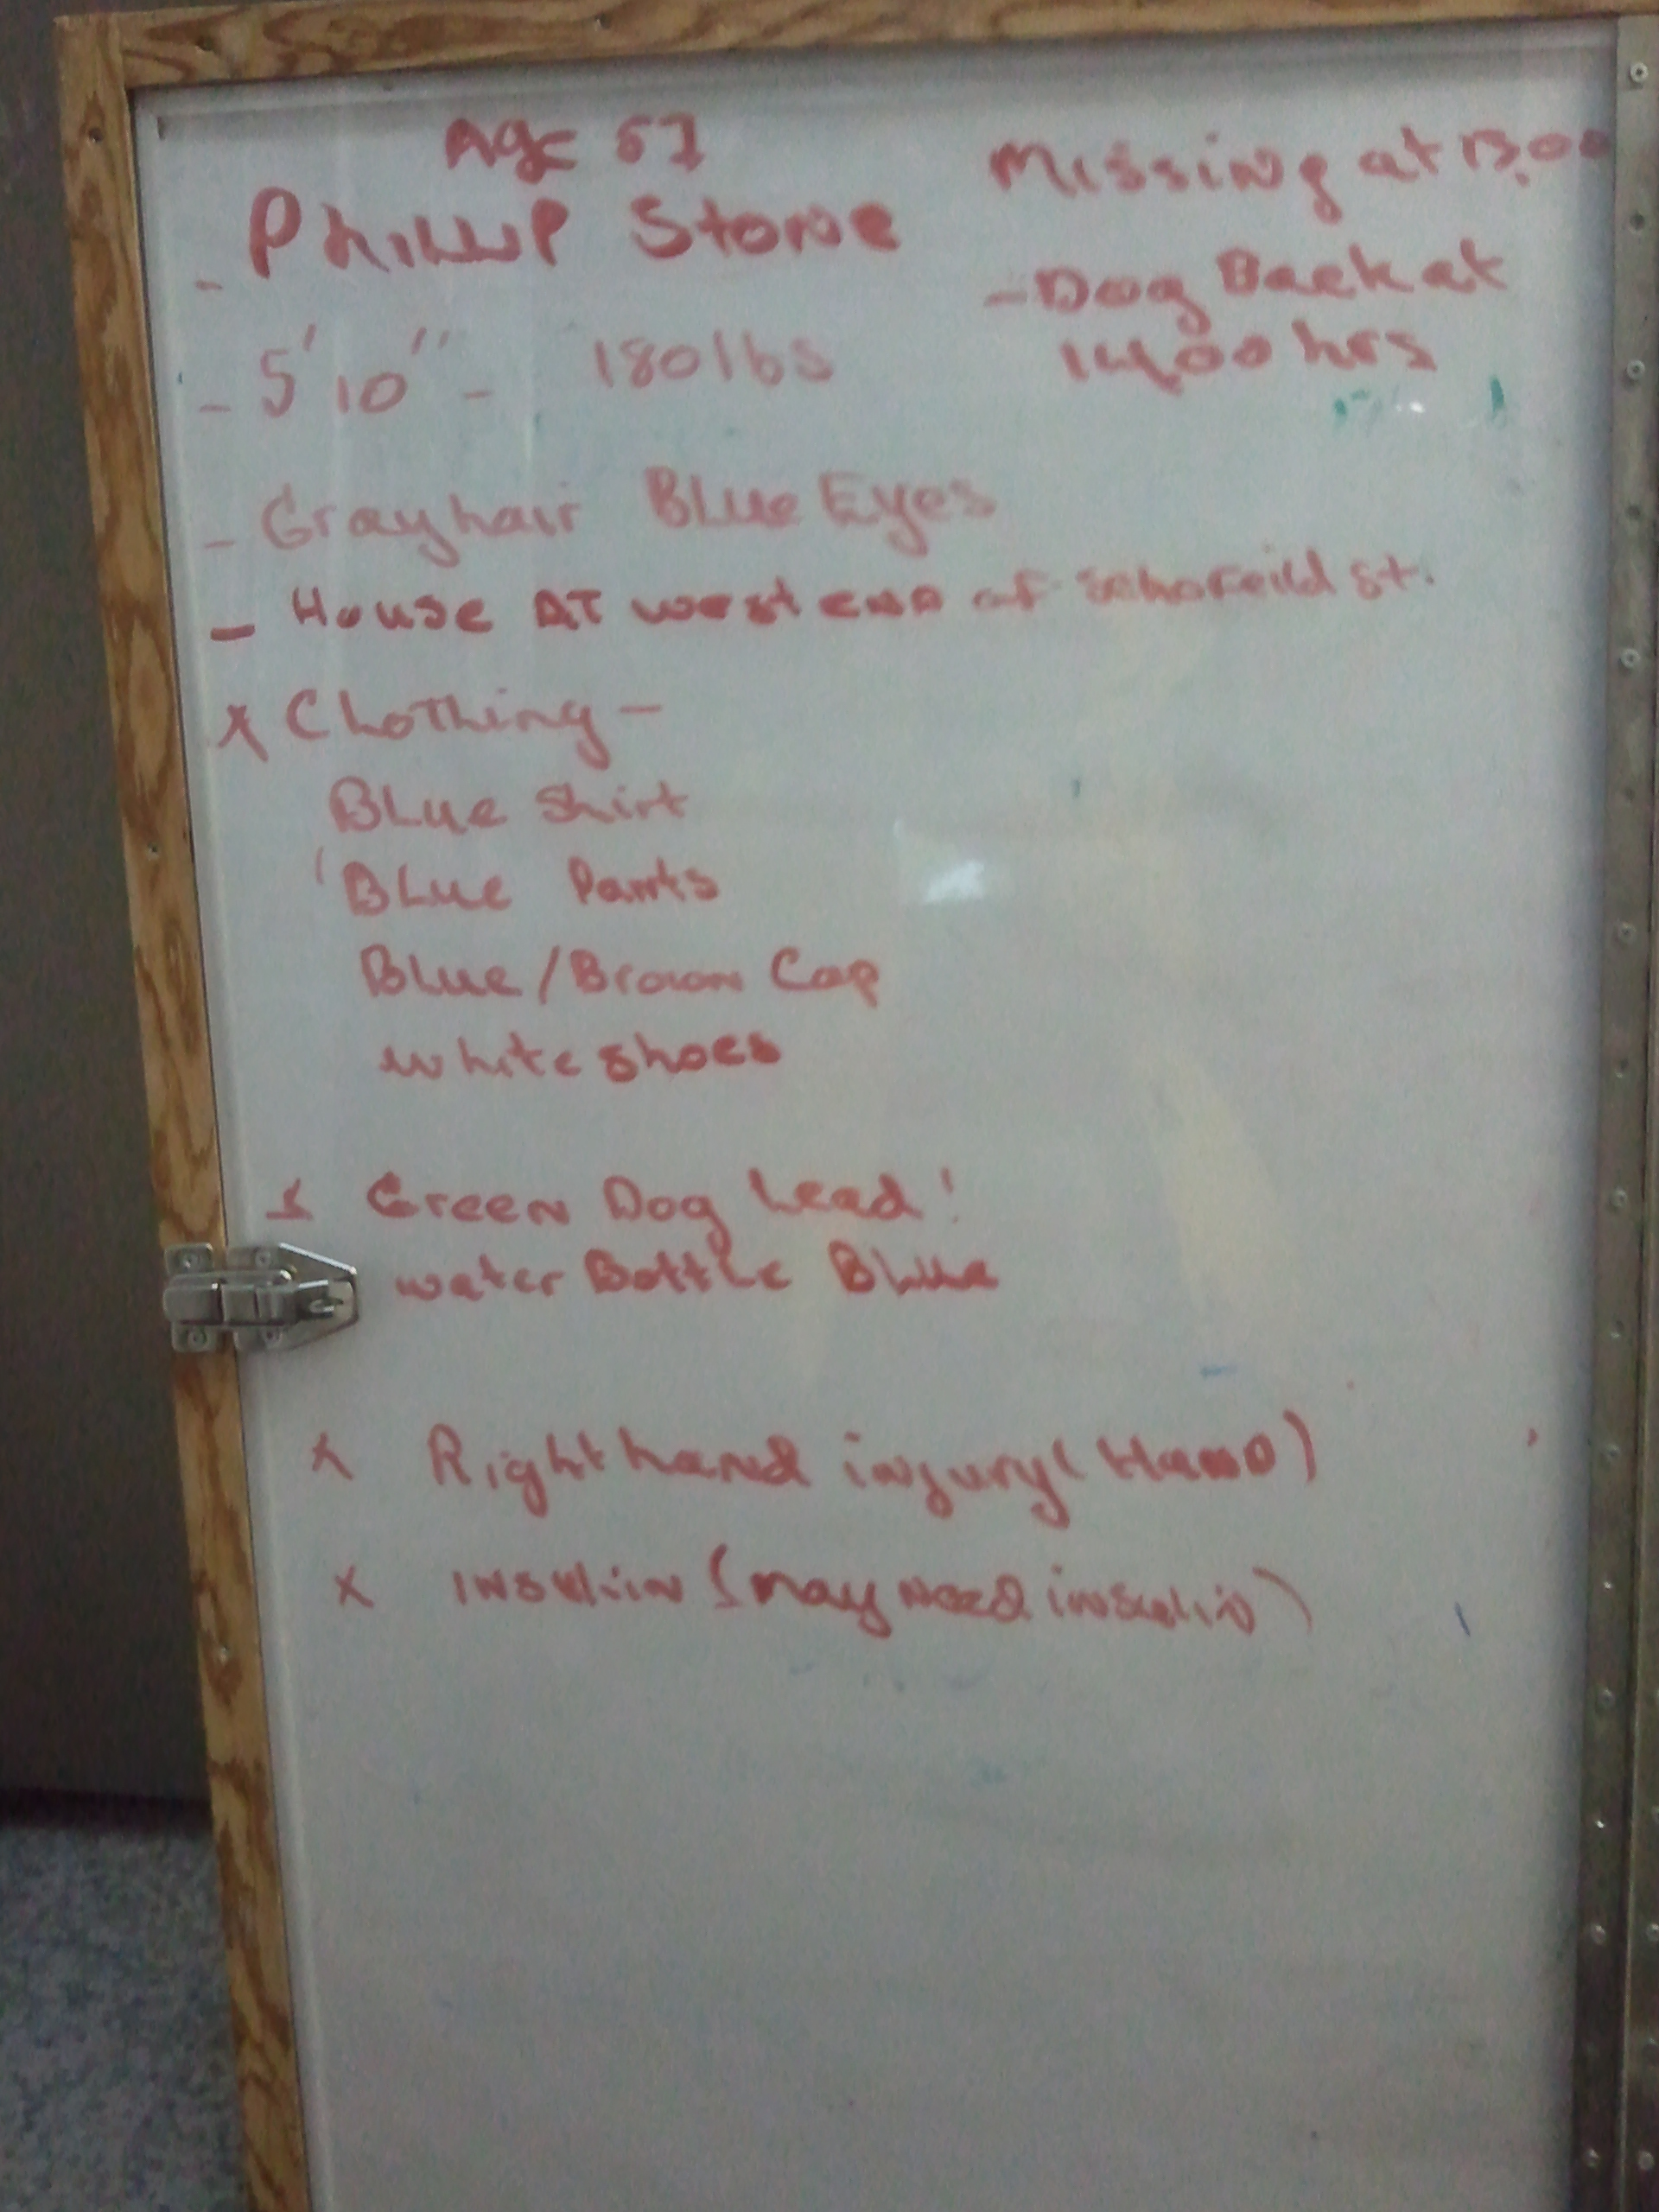 Age 57
Missing at 13:00
- Phillip Stone
- Dog Back at
1400 hrs
- 5' 10" - 180 lbs
- Gray hair Blue Eyes
- House AT west end of Schofeild st.
x Clothing -
Blue Shirt
Blue Pants
Blue/Brown Cap
white shoes
x Green Dog Lead!
water Bottle Blue
x Right hand injury (Hand)
x insulin (may need insulin)